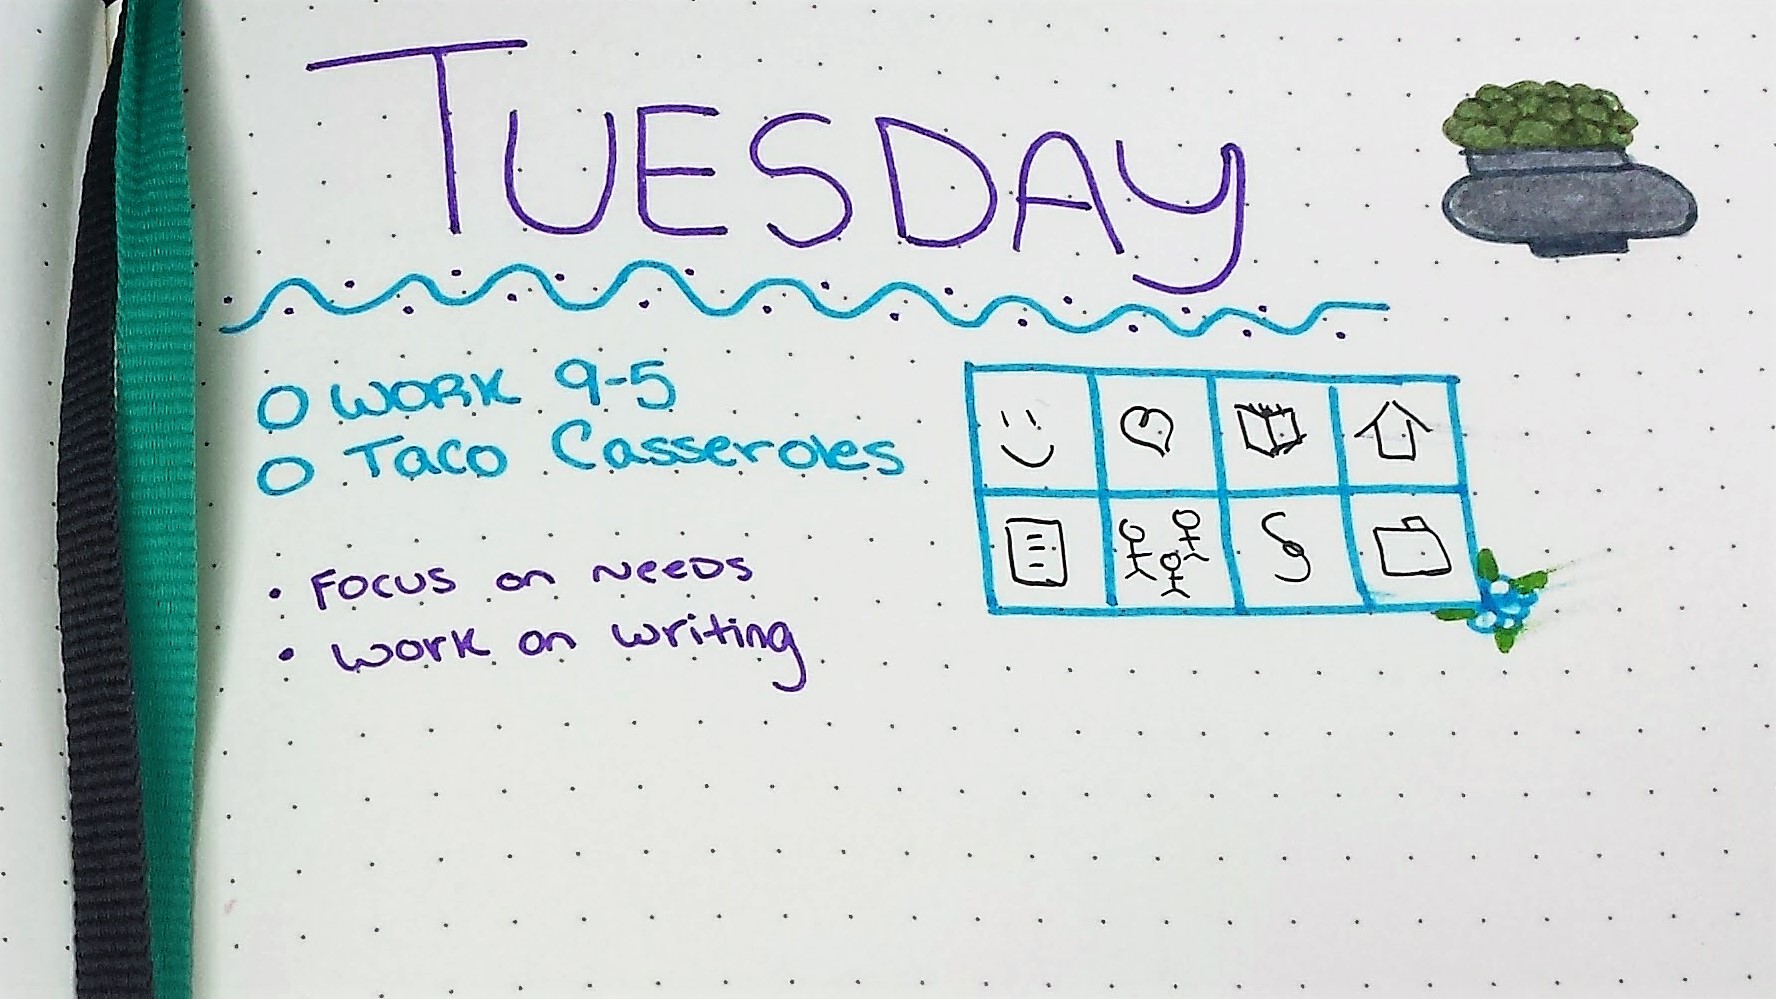 TUESDAY
O WORK 9-5
O Taco Casseroles
• Focus on Needs
• Work on writing